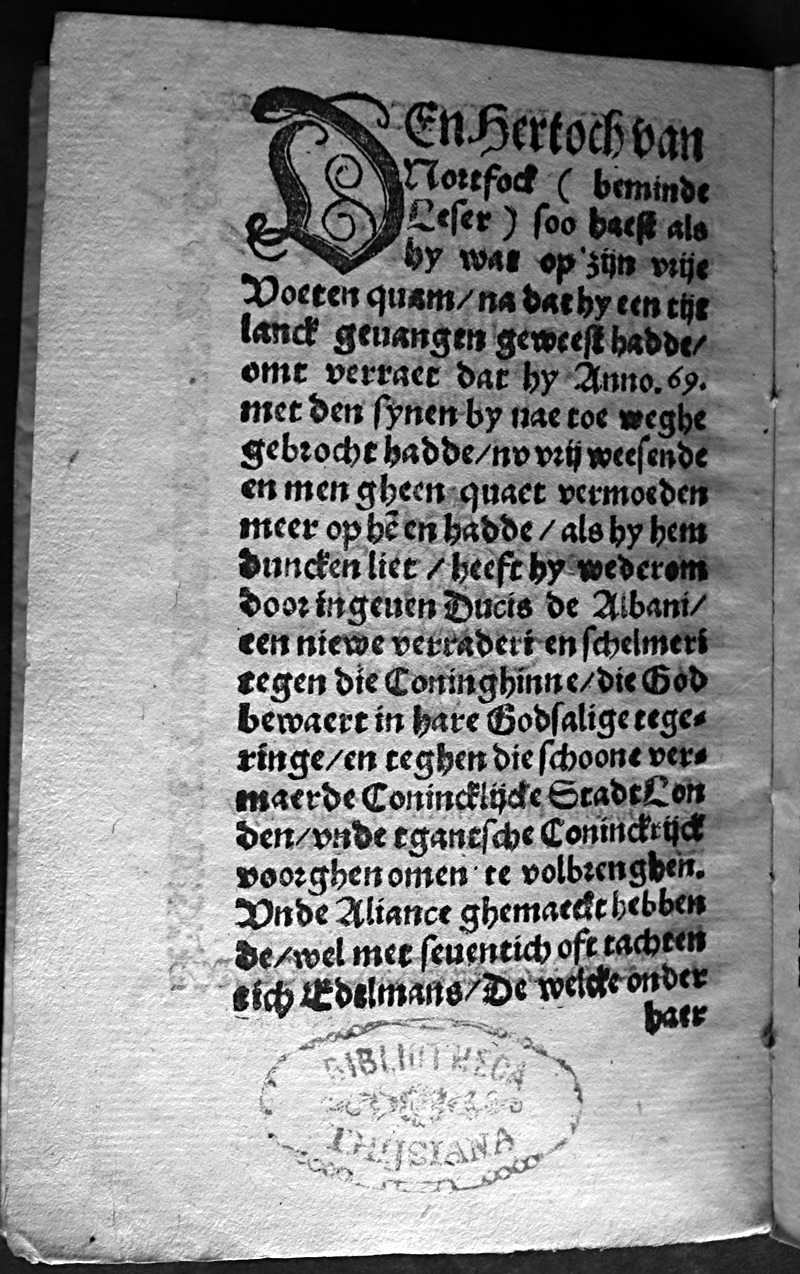 DEn Hertoch van
Nortfock ( beminde
Leser ) soo haest als
hy wat op zijn vrije
Voeten quam/na dat hy een tijt
lanck geuangen geweest hadde/
omt verraet dat hy Anno. 69.
met den synen by nae toe weghe
gebrocht hadde/nv vrij weesende
en men gheen quaet vermoeden
meer op hē en hadde / als hy hem
duncken liet / heeft hy wederom
door ingeuen Ducis de Albani/
een niewe verraderi en schelmeri
tegen die Coninghinne/die God
bewaert in hare Godsalige rege-
ringe/en teghen die schoone ver-
maerde Conincklijcke Stadt Lon
den/vnde tgantsche Coninckrijck
voorghenomen te volbrenghen.
Vnde Aliance ghemaeckt hebben
de/wel met seuentich oft tachten
tich Edelmans/De welcke onder
haer
BIBLIOTHECA
THYSIANA